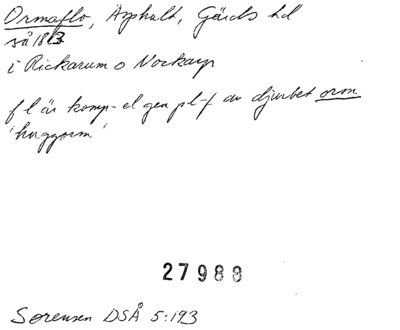 Ormaflo, Äsphult, Gärds hd
så 1813
i Rickarum o Nockarp
f l är komp- el gen pl-f av djurbet orm
'huggorm'
27988
Sørensen DSÅ 5:193